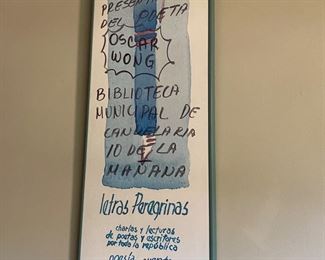 PRESENTA
DEL POETA
OSCAR
WONG
BIBLIOTECA
MUNICIPAL DE
CANDELARIA
10 DE LA
MAÑANA
letras Peregrinas
charlas y lecturas
de poetas y escritores
por toda la república
poesía